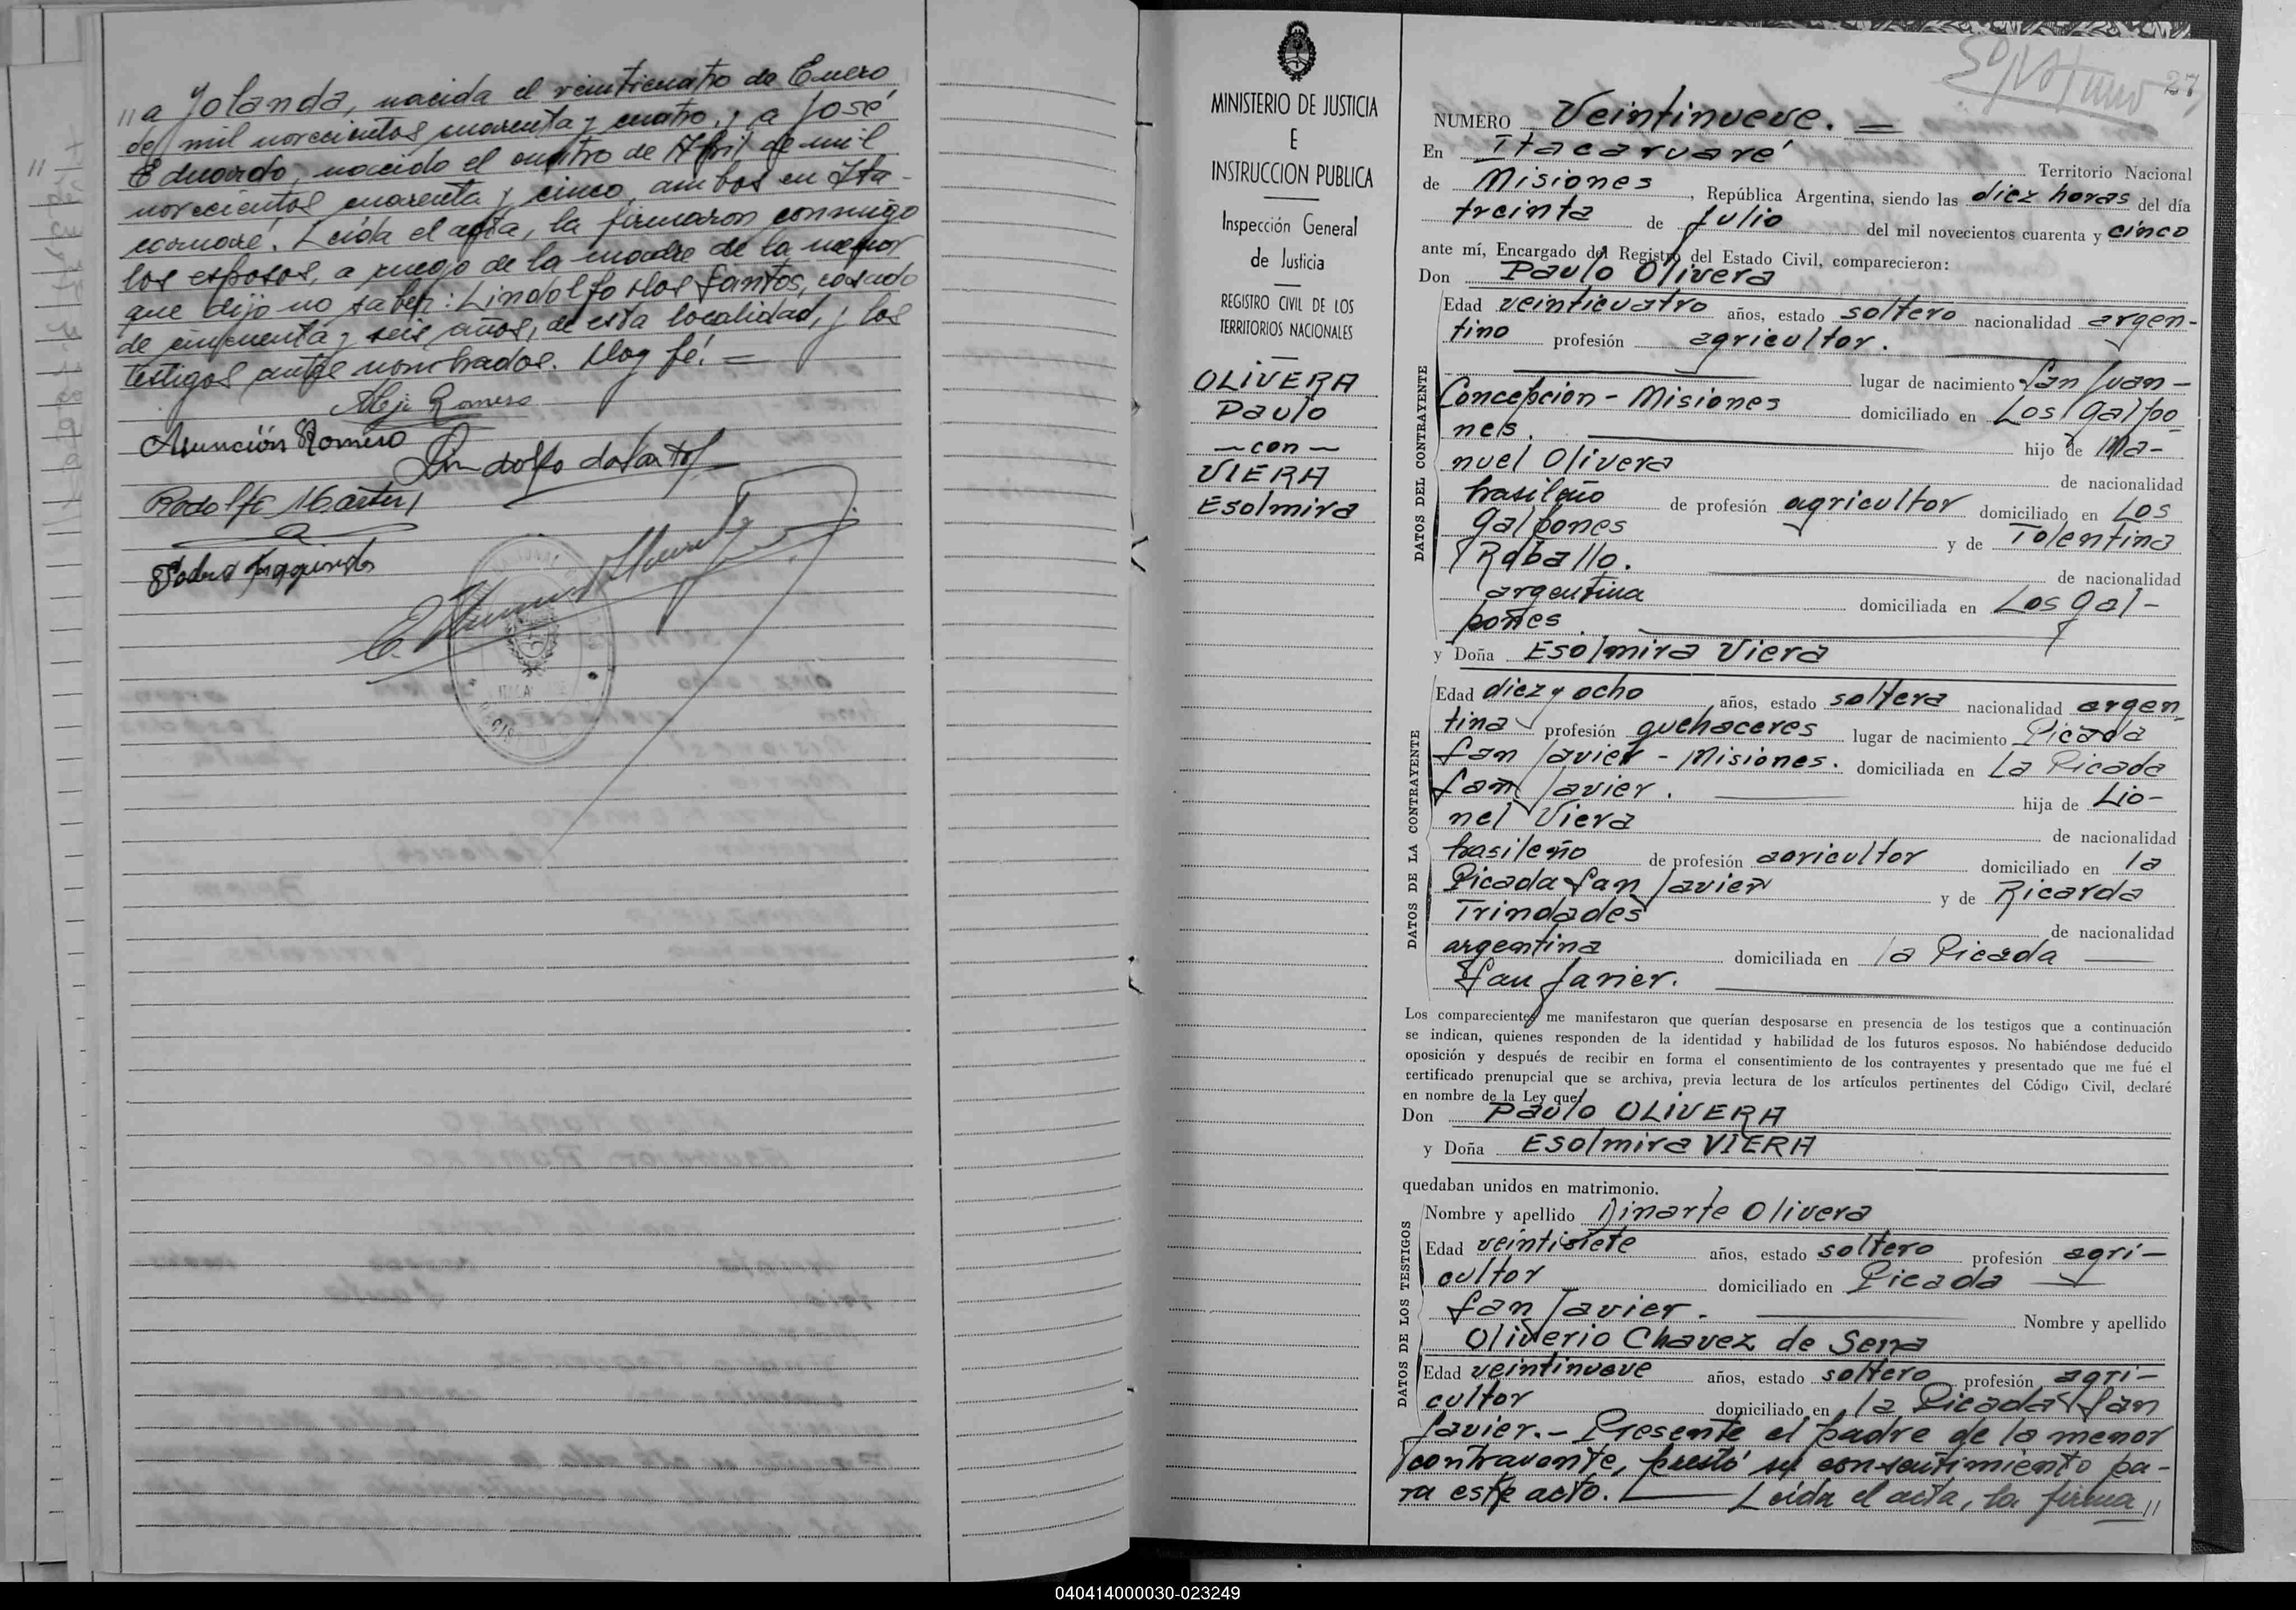 "a Yolanda, nacida el veinticuatro de Enero
de mil novecientos cuarenta y cuatro, y a José
Eduardo, nacido el cuatro de Abril de mil
novecientos cuarenta y cinco, ambos en Ita-
caruaré. Leída el acta, la firmaron conmigo
los esposos, a ruego de la madre de la menor
que dijo no saber: Lindolfo dos Santos, casado
de cincuenta y seis años, de esta localidad, y los
testigos antes nombrados. Doy fé! =
Romero
Asunción Romero
Lindolfo dosantos
Rodolfo
Pedro
MINISTERIO DE JUSTICIA
E
INSTRUCCION PUBLICA
Inspección General
de Justicia
REGISTRO CIVIL DE LOS
TERRITORIOS NACIONALES
OLIVERA
Paulo
— con —
VIERA
Esolmira
27
NUMERO Veintinueve. =
En Itacaruaré Territorio Nacional
de Misiones, República Argentina, siendo las diez horas del día
treinta de Julio del mil novecientos cuarenta y cinco
ante mí, Encargado del Registro del Estado Civil, comparecieron:
Don Paulo Olivera
DATOS DEL CONTRAYENTE
Edad veinticuatro años, estado soltero nacionalidad argen-
tino profesión agricultor.
lugar de nacimiento San Juan -
Concepcion - Misiones domiciliado en Los galpo
nes. hijo de Ma-
nuel Olivera de nacionalidad
brasileño de profesión agricultor domiciliado en Los
galpones y de Tolentina
Roballo. de nacionalidad
argentina domiciliada en Los gal-
pones.
y Doña Esolmira Viera
DATOS DE LA CONTRAYENTE
Edad diez y ocho años, estado soltera nacionalidad argen
tina profesión quehaceres lugar de nacimiento Picada
San Javier - Misiones. domiciliada en La Picada
San Javier. hija de Lio-
nel Viera de nacionalidad
brasileño de profesión agricultor domiciliado en la
Picada San Javier y de Ricarda
Trindades de nacionalidad
argentina domiciliada en la Picada —
San Javier.
Los comparecientes me manifestaron que querían desposarse en presencia de los testigos que a continuación
se indican, quienes responden de la identidad y habilidad de los futuros esposos. No habiéndose deducido
oposición y después de recibir en forma el consentimiento de los contrayentes y presentado que me fué el
certificado prenupcial que se archiva, previa lectura de los artículos pertinentes del Código Civil, declaré
en nombre de la Ley que:
Don Paulo OLIVERA
y Doña Esolmira VIERA
quedaban unidos en matrimonio.
DATOS DE LOS TESTIGOS
Nombre y apellido Dinarte Olivera
Edad veintisiete años, estado soltero profesión agri-
cultor domiciliado en Picada —
San Javier. Nombre y apellido
Oliverio Chavez de Sena
Edad veintinueve años, estado soltero profesión agri-
cultor domiciliado en la Picada San
Javier.- Presente el padre de la menor
contrayente, prestó su consentimiento pa-
ra este acto. — Leída el acta, la firma"
040414000030-023249